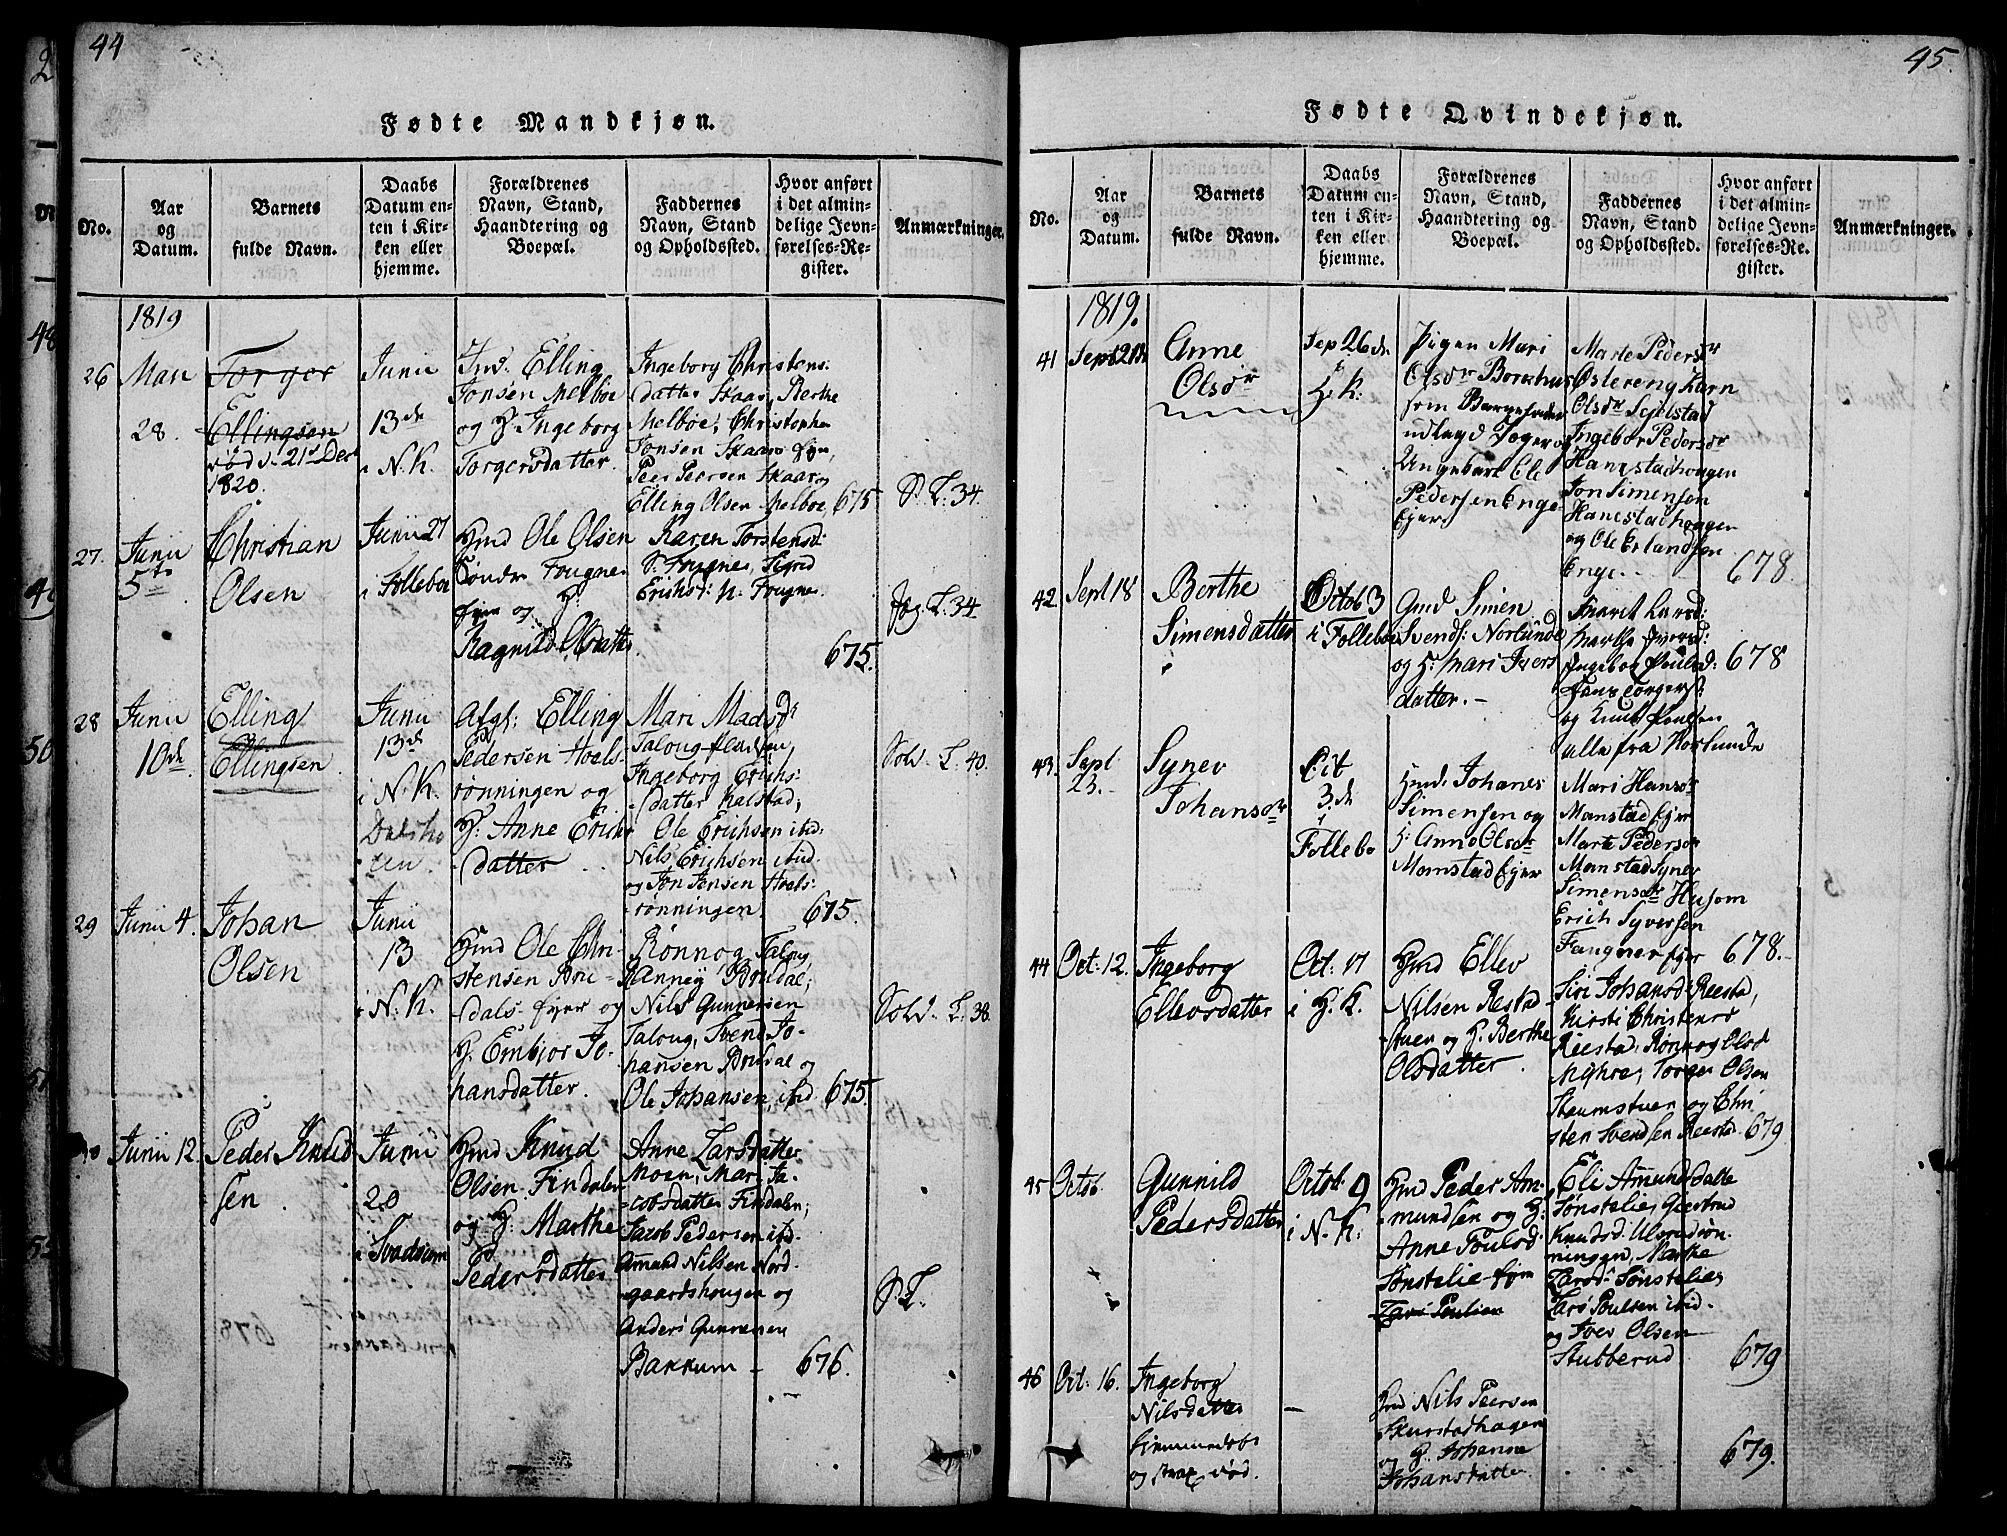 44
Fødte Mandkjøn.
No.
Aar
og
Datum.
Barnets
fulde Navn.
Daabs
Datum en-
ten i Kir-
ken eller
hjemme.
Forældrenes
Navn, Stand,
Haandtering og
Boepæl.
Faddernes
Navn, Stand
og Opholdssted.
Hvor anført
i det almin-
delige Jevn-
førelses-Re-
gister.
Anmærkninger.
1819
26
Maii
28.
Torger
Ellingsen
død d. 21 Des
1820.
Junii
13de
i N. K.
Elling
Jonsen Melbøe
og H. Ingeborg
Torgersdatter.
Ingeborg Christens:
datter Skaar, Berthe
Melbøe, Christopher
Jonsen Skaar
Peer Peersen Skaar og
Elling Olsen Melbøe
675
S. L. 34.
27.
Junii
5te
Christian
Olsen
Junii 27
i Follebo
Gmd Ole Olsen
Søndr Fougner
Ejer og H.
Ragnild Olsdatter
Karen Torstensd:
S. Fougner, Sigrid
Erichsd: N. Fougner
675.
L. 34
28
Junii
10de
Elling
Ellingsen
Junii
13de
i N. K.
Afgf: Elling
Pedersen Hoels-
rønningen og
H. Anne Erichs
datter
Mari Madsdr
Taloug
Ingeborg Erichs:
datter Kalstad,
Ole Erichsen ibid:
Nils Erichsen ibid.
og Jon Jensen Hoels:
rønningen.
675.
Sold. L. 40.
29
Junii 4.
Johan
Olsen
Junii
13
i N. K.
Gmd Ole Chri-
stensen Bru-
dals Ejer og
H. Embjør Jo-
hansdatter.
Rønnog Taloug,
Ranney Brudal,
Nils Gunnersen
Taloug, Svend Jo-
hansen Brudal og
Ole Johansen, ibid
675.
Sold. L. 38.
30
Junii 12.
Peder Knud-
sen
Junii
20
i Svadsum
Gmd Knud
Olsen Findalen
og H. Marthe
Pedersdatter
Anne Larsdatter
Moen, Mari Ja-
cobsdatter Findalen,
Jacob Pedersen ibd.
Amund Nilsen Nord-
gaardshougen og
Anders Gunnersen
Bakkum
676.
S. L.
45.
Fødte Qvindekjøn.
No.
Aar
og
Datum.
Barnets
fulde Navn.
Daabs
Datum en-
ten i Kir-
ken eller
hjemme.
Forældrenes
Navn, Stand,
Haandtering og
Boepæl.
Faddernes
Navn, Stand
og Opholdssted.
Hvor anført
i det almin-
delige Jevn-
førelses-Re-
gister.
Anmærkninger.
1819.
41
Sept 21de
Anne
Olsdr
Sep 26de
i
H. K.
Pigen Mari
Olsdr
som Barnefader
udlagd
Ungekarl Ole
Pedersen Enge
Ejer
Marte Pedersdr
Østereng Karn
Olsdr
Ingebor Pedersdr
Hanestadhougen
Jon Simensen
Hanestadhougen
og Ole Erlandsen
Enge.
678.
42
Sept 18
Berthe
Simensdatter
Octob 3
i Follebo
Gmd Simen
Svends: Norlunde
og H. Mari Ivers
datter.
Maret Larsd:
Marthe Iversd:
Ingebor Poulsd:
Jens Torgers:
og Knud Poulsen
alle fra Norlunde
678
43.
Sept
23.
Synev
Johansdr
Oct
3de
i
Follebo
Gmd. Johanes
Simensen og
H. Anne Olsdr
Momstad Ejer
Mari Hansdr
Momstad Ejer
Marte Pedersdr
Momstad Synev
Simensdr Husom
Erich Syversen
Fougner Ejer
678.
44
Oct: 12.
Ingeborg
Ellevsdatter
Oct: 17
i H. K.
Gmd Ellev
Nilsen Resta
stuen og H. Berthe
Olsdatter.
Siri Johansd: Reesta,
Kirsti Christensd
Reesta, Rønnog Olsd
Myhre, Torger Olsen
Staumstuen og Chri
sten Svendsen Reesta
679
45
Octob.
Gunnild
Pedersdatter
Octob. 9
i N. K.
Gmd Peder Am-
mundsen og H:
Anne Poulsd.
Sønstelie Ejer
Lars Poulsen
Eli Amundsdatter
Sønstelie, Giestrud
Knudsd. Ulsrudrøn-
ningen, Marthe
Larsdr Sønstelie,
Lars Poulsen ibid.
og Iver Olsen
Stubberud
679
46
Oct: 16.
Ingeborg
Nilsdatter
hjemmedøbt
og strax død.
Gmd Nils Peersen
Skurstadhagen
og H. Johanne
Johansdatter
679.